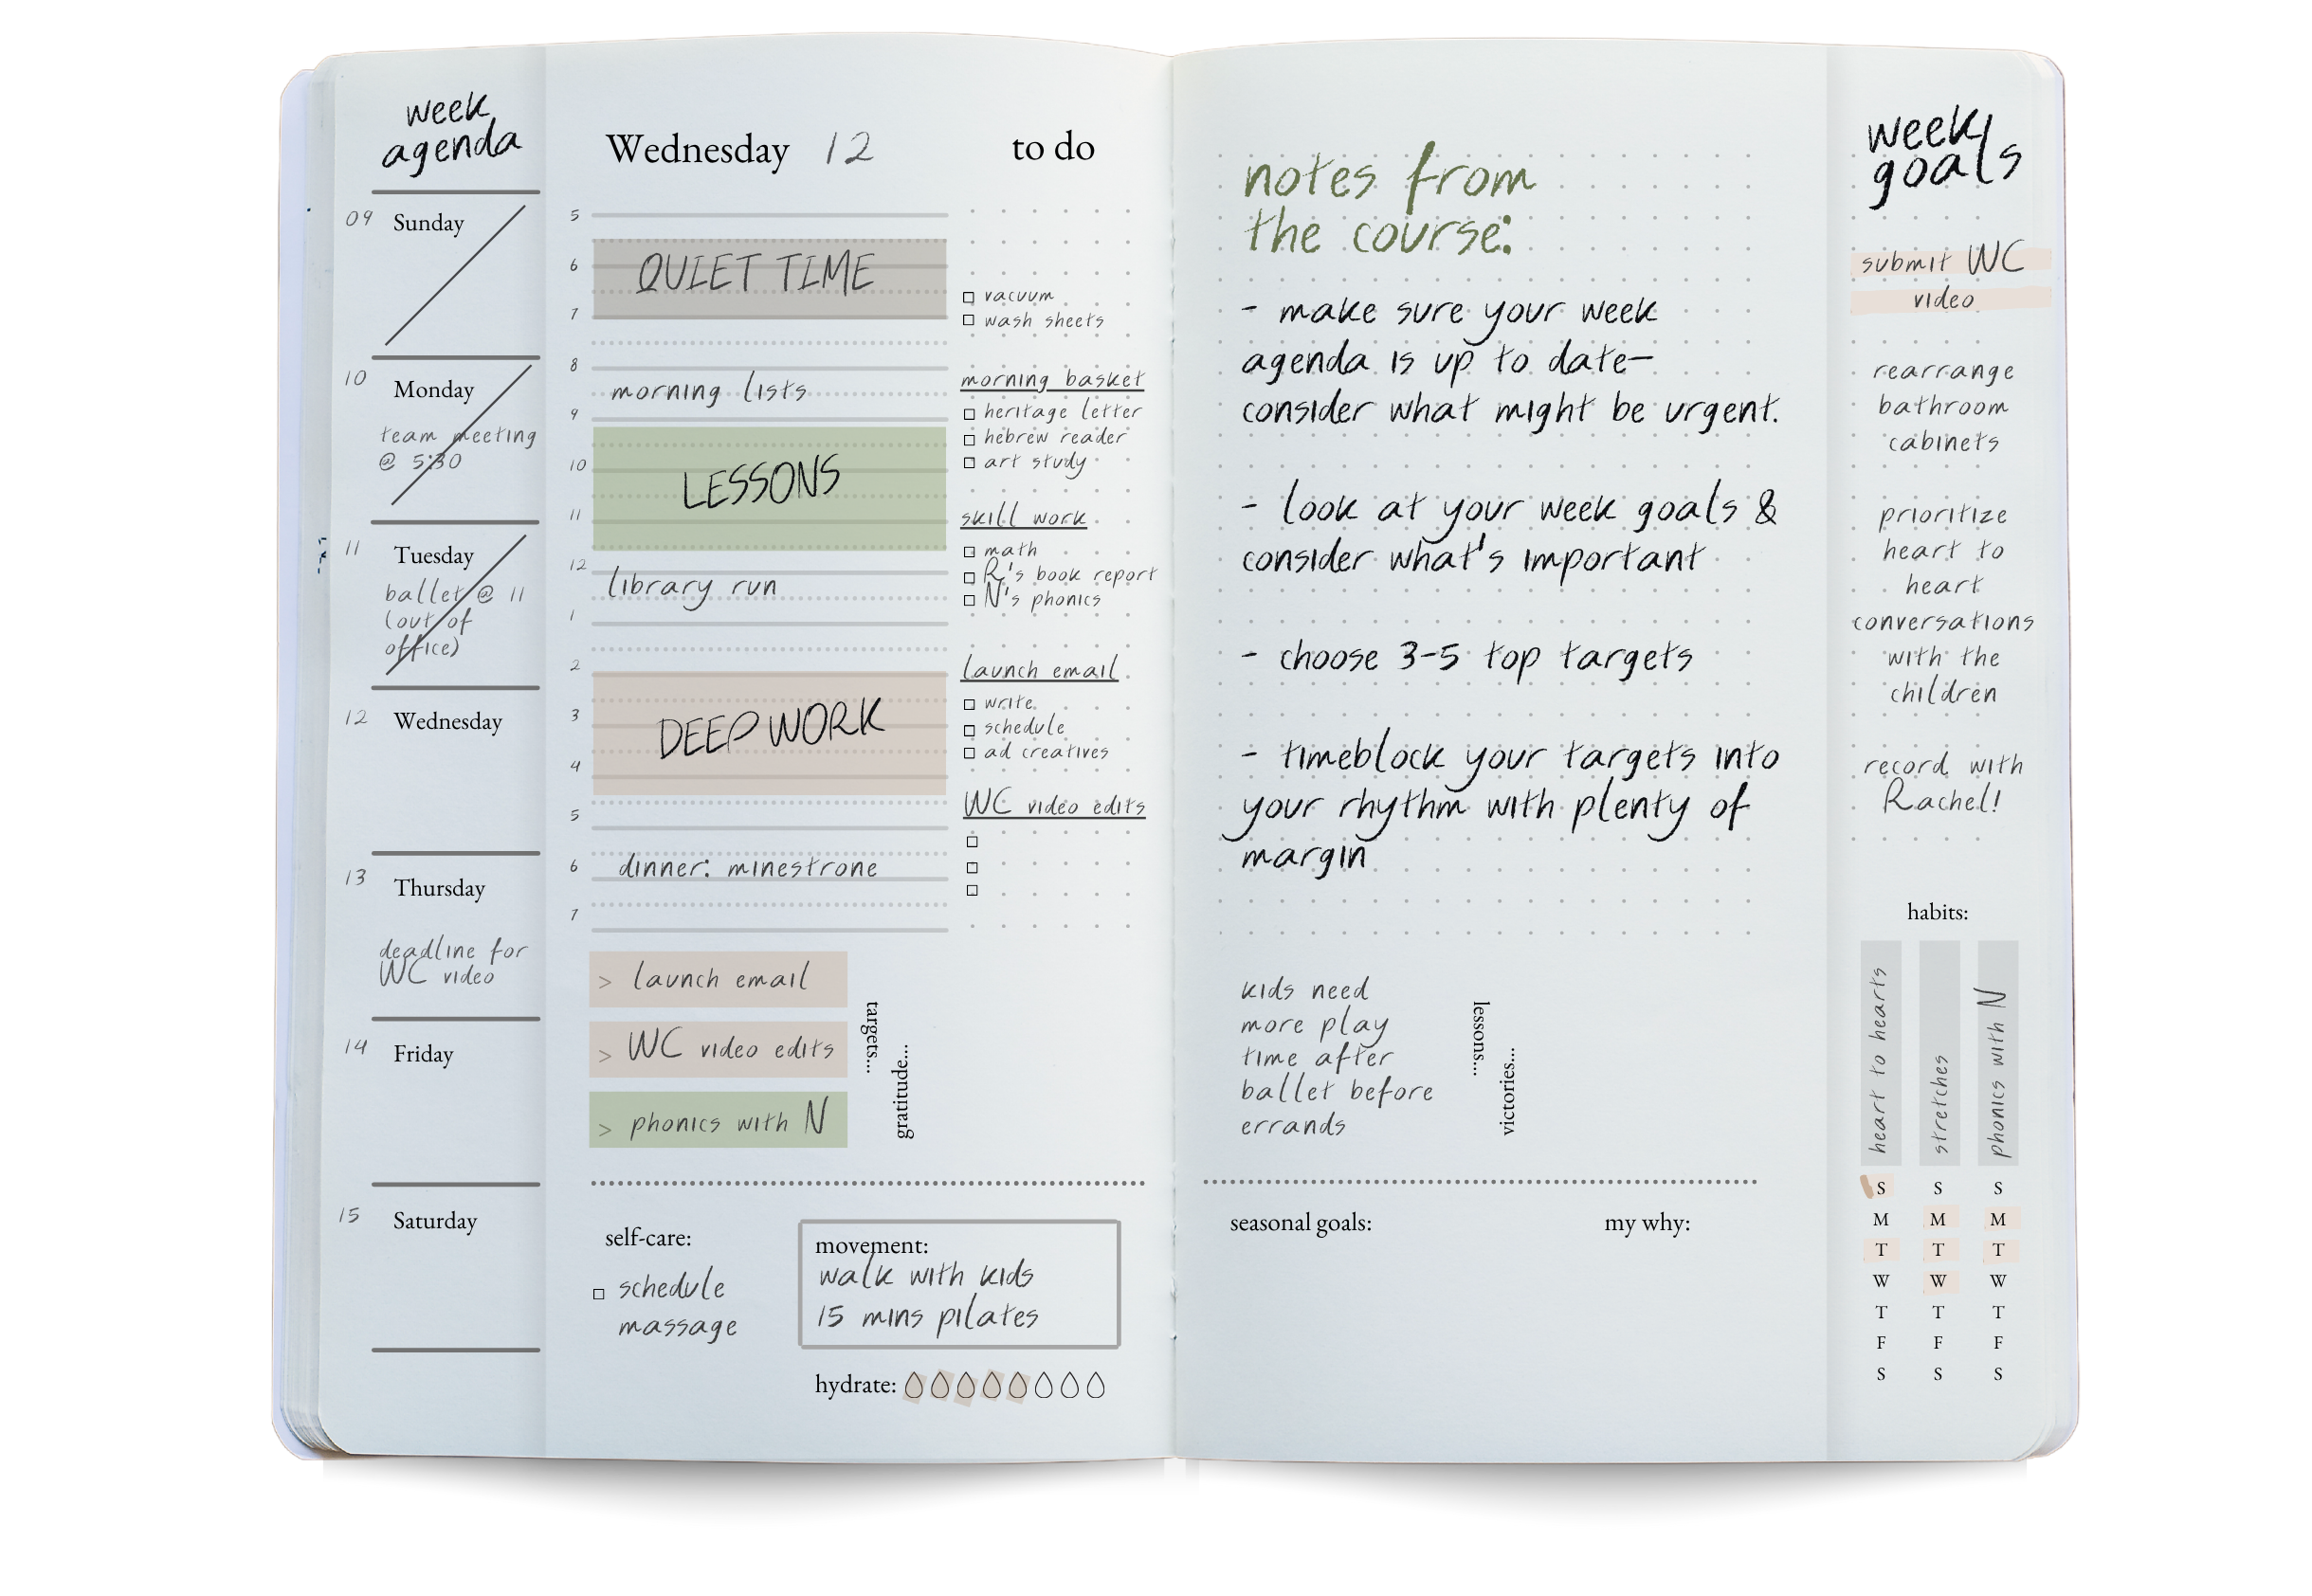 week
agenda
09 Sunday
10 Monday
team meeting
@ 5:30
11 Tuesday
ballet @ 11
(out of
office)
12 Wednesday
13 Thursday
deadline for
WC video
14 Friday
15 Saturday
Wednesday 12
5
6
QUIET TIME
7
8
morning lists
9
10
LESSONS
11
12
library run
1
2
3
DEEP WORK
4
5
6
dinner: minestrone
7
> launch email
> WC video edits
> phonics with N
targets...
gratitude...
to do
vacuum
wash sheets
morning basket
heritage letter
hebrew reader
art study
skill work
math
R's book report
N's phonics
launch email
write
schedule
ad creatives
WC video edits
self-care:
schedule
massage
movement:
walk with kids
15 mins pilates
hydrate:
notes from
the course:
- make sure your week
agenda is up to date—
consider what might be urgent.
- look at your week goals &
consider what's important
- choose 3-5 top targets
- timeblock your targets into
your rhythm with plenty of
margin
kids need
more play
time after
ballet before
errands
lessons...
victories...
seasonal goals:
my why:
week
goals
submit WC
video
rearrange
bathroom
cabinets
prioritize
heart to
heart
conversations
with the
children
record with
Rachel!
habits:
heart to hearts
stretches
phonics with N
S S S
M M M
T T T
W W W
T T T
F F F
S S S